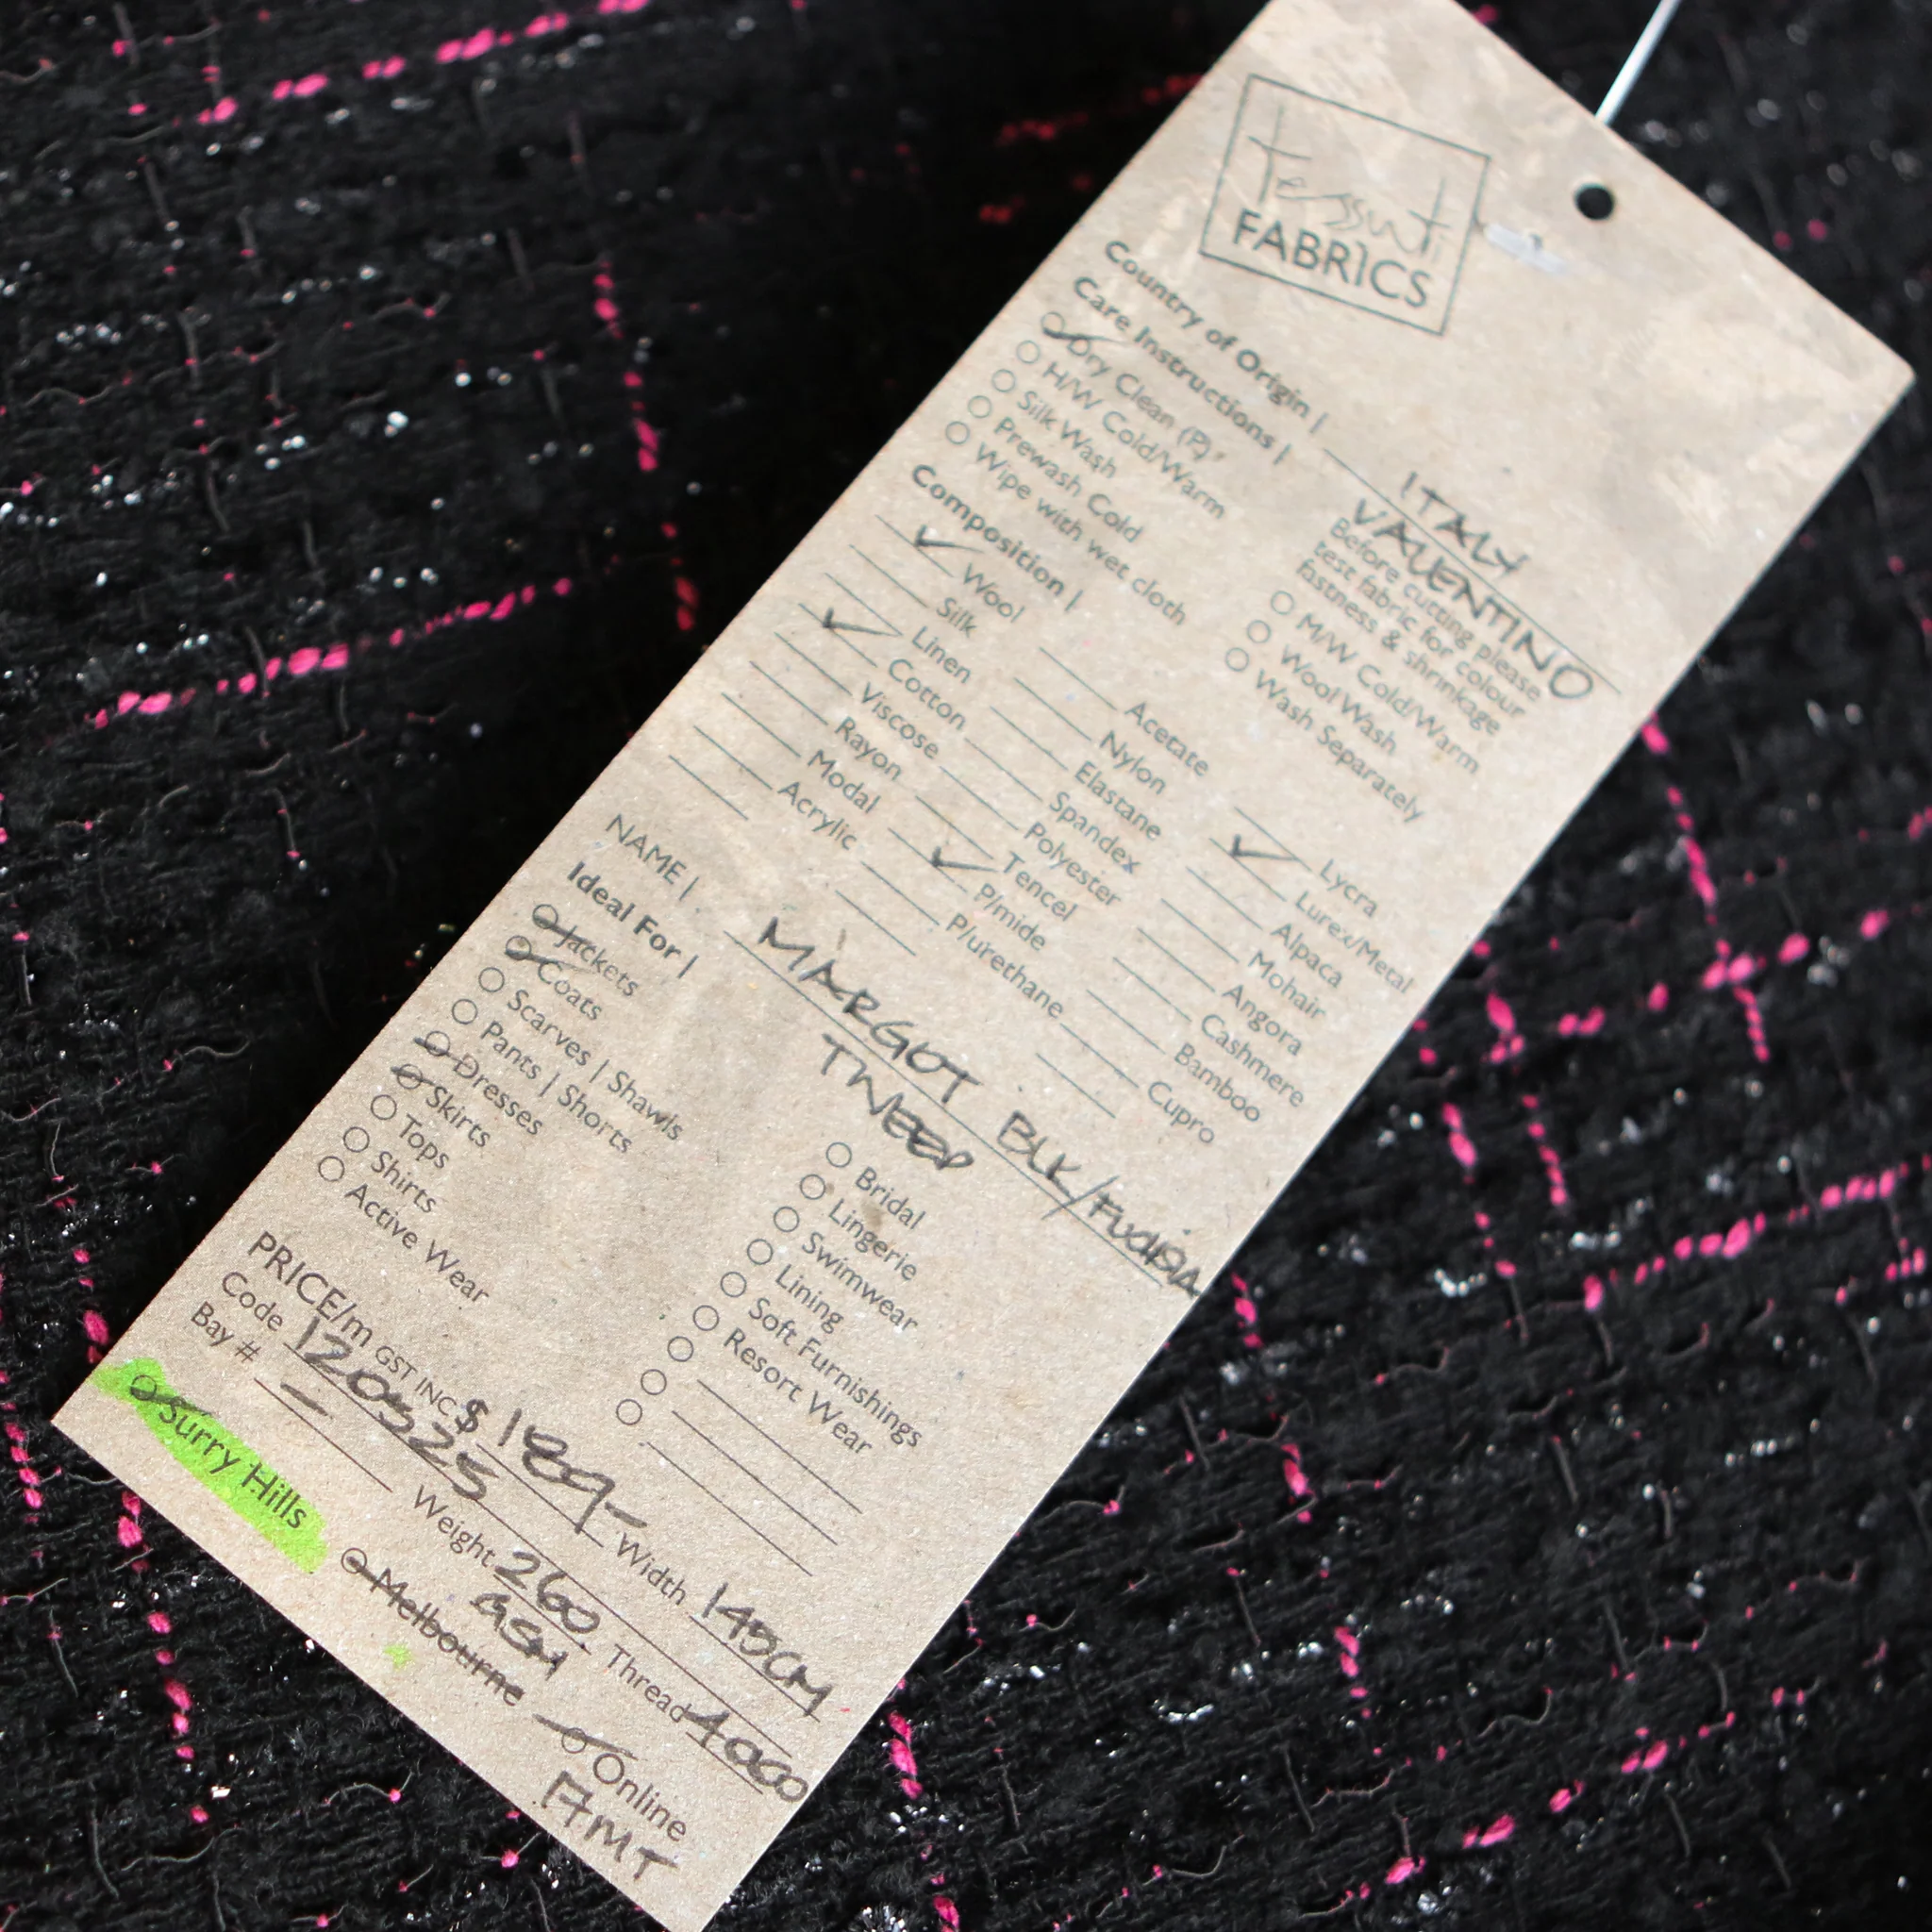 Tessuti
FABRICS
Country of Origin | ITALY
VALENTINO
Care Instructions | Before cutting please
test fabric for colour
fastness & shrinkage
Dry Clean (P)
H/W Cold/Warm
Silk Wash
Prewash Cold
Wipe with wet cloth
M/W Cold/Warm
Wool Wash
Wash Separately
Composition |
Wool
Silk
Linen
Cotton
Viscose
Rayon
Modal
Acrylic
Acetate
Nylon
Elastane
Spandex
Polyester
Tencel
P/mide
P/urethane
Lycra
Lurex/Metal
Alpaca
Mohair
Angora
Cashmere
Bamboo
Cupro
NAME | MARGOT BLK/
TWEED
Ideal For |
Jackets
Coats
Scarves | Shawls
Pants | Shorts
Dresses
Skirts
Tops
Shirts
Active Wear
Bridal
Lingerie
Swimwear
Lining
Soft Furnishings
Resort Wear
PRICE/m GST INC $ 189- Width 140CM
Code 120525 Weight 260 GSM Thread 4000
Bay # –
Surry Hills Melbourne Online
17MT